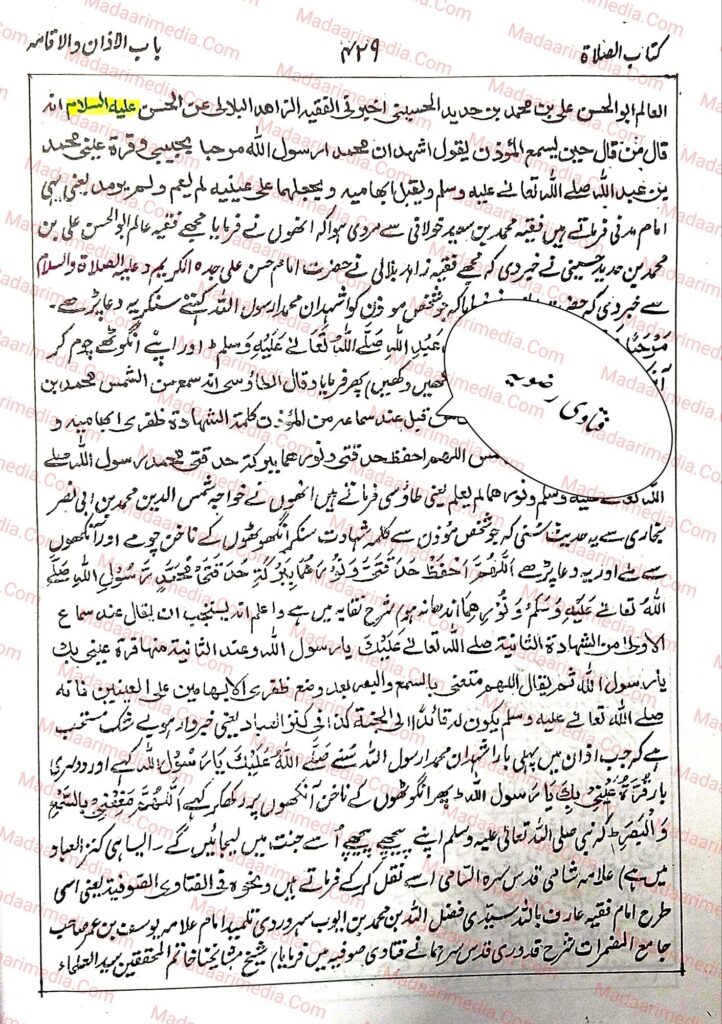 کتاب الصلاۃ
۴۲۹
باب الاذان والاقامہ
العالم ابو الحسن علی بن محمد بن حدید الحسینی اخبرنی الفقیہ الزاھد البلالی عن الحسن علیہ السلام انہ
قال من قال حین یسمع المؤذن یقول اشھد ان محمد ارسول اللہ مرحبا بحبیبی وقرۃ عینی محمد
بن عبد اللہ صلے اللہ تعالے علیہ وسلم ویقبل ابھامیہ ویجعلھما علی عینیہ لم یعم ولم یرمد یعنی یہی
امام مدنی فرماتے ہیں فقیہ محمد بن سعید خولانی سے مروی ہوا کہ انھوں نے فرمایا مجھے فقیہ عالم ابو الحسن علی بن
محمد بن حدید حسینی نے خبر دی کہ مجھے فقیہ زاہد بلالی نے حضرت امام حسن علی جدہ الکریم و علیہ الصلاۃ والسلام
سے خبر دی کہ کہ جو شخص موذن کو اشہد ان محمد ارسول اللہ کہتے سنکر یہ دعا پڑھے۔
مَرْحَبًا عَبْدِ اللہِ صَلَّے اللہُ تَعَالےٰ عَلَیْہِ وَسَلَّمَ اور اپنے انگوٹھے چوم کر
دکھیں) پھر فرمایا وقال الطاؤسی انہ سمع من الشمس محمد بن
قبل عند سماعہ من المؤذن کلمۃ الشھادۃ ظفری ابھامیہ و
اللھم احفظ حدقتی ونورھما ببرکۃ حدقتی محمد رسول اللہ صلے
اللہ تعالے علیہ وسلم ونورھما لم یعلم یعنی طاؤسی فرماتے ہیں انھوں نے خواجہ شمس الدین محمد بن ابی نصر
بخاری سے یہ حدیث سنی کہ جو شخص مؤذن سے کلمہ شہادت سنکر انگھوٹھوں کے ناخن چومے اور آنکھوں
سے ملے اور یہ دعا پڑھے اَللّٰھُمَّ احْفَظْ حَدَقَتَیَّ وَنُوْرَھُمَا بِبَرَکَۃِ حَدَقَتَیْ مُحَمَّدٍ رَّسُوْلِ اللہِ صَلَّے
اللہُ تَعَالےٰ عَلَیْہِ وَسَلَّمَ وَنُوْرِھِمَا اندھا نہ ہو) شرح نقایہ میں ہے واعلم انہ یستحب ان یقال عند سماع
الاولیٰ من الشھادۃ الثانیۃ صلے اللہ تعالے عَلَیْکَ یارسول اللہ وعند الثانیۃ منھا قرۃ عینی بک
یارسول اللہ ثم یقال اللھم متعنی بالسمع والبصر بعد وضع ظفری الابھامین علی العینین فانہ
صلے اللہ تعالے علیہ وسلم یکون لہ قائدا الی الجنۃ کذا فی کنز العباد یعنی خبردار ہو بے شک مستحب
ہے کہ جب اذان میں پہلی بار اشہدان محمد ارسول اللہ سنے صَلَّے اللہُ عَلَیْکَ یَارَسُوْلَ اللہ کہے اور دوسری
بار قُرَّۃُ عَیْنِیْ بِکَ یَارَسُوْلَ اللہ پھر انگوٹھوں کے ناخن آنکھوں پر رکھ کر کہے اَللّٰھُمَّ مَتِّعْنِیْ بِالسَّمْعِ
وَالْبَصَرِ کہ نبی صلی اللہ تعالیٰ علیہ وسلم اپنے پیچھے پیچھے اُسے جنت میں لیجائیں گے۔ ایسا ہی کنز العباد
میں ہے) علامہ شامی قدس سرہ السامی اسے نقل کر کے فرماتے ہیں ونحوہ فی الفتاوی الصوفیۃ یعنی اسی
طرح امام فقیہ عارف باللہ سیدی فضل اللہ بن محمد بن ایوب سہروردی تلمیذ امام علامہ یوسف بن عمر صاحب
جامع المضمرات شرح قدوری قدس سرہما نے فتاوی صوفیہ میں فرمایا) شیخ مشایخنا خاتم المحققین سید العلماء
فتاوی رضویہ
MadaariMedia.Com